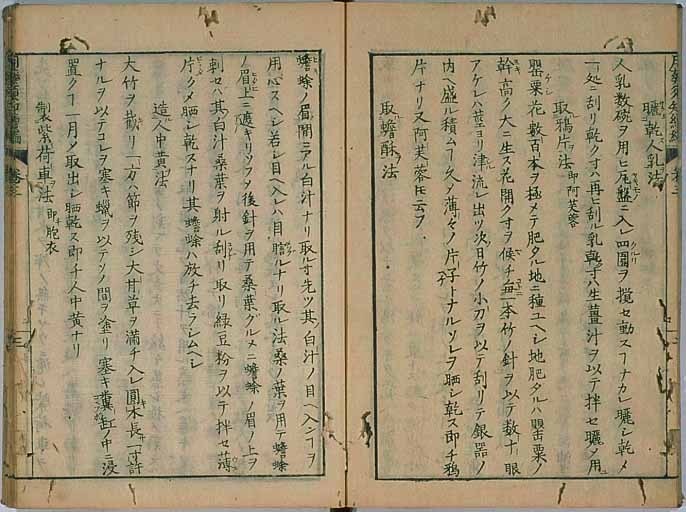 曬乾人乳法
人乳数碗ヲ用ヒ瓦盤ニ入レ四圍ヲ攪セ動スヿナカレ曬シ乾メ
一処ニ刮リ乾クオハ再ヒ刮ル乳乾オハ生薑汁ヲ以テ拌セ曬メ用
取鴉片法 即阿芙蓉
罌粟花数百本ヲ極メテ肥タル地ニ種ユヘシ地肥タルハ罌粟ノ
幹高ク大ニ生ス花開クオヲ候チ毎一本竹ノ針ヲ以テ数十眼
アケレハ莖ヨリ津流レ出ツ次日竹ノ小刀ヲ以テ刮リテ銀器ノ
内ヘ盛ル積ムヿ久メ薄キノ片子トナルソレヲ晒シ乾ス即チ鴉
片ナリ又阿芙蓉トモ云フ
取蟾酥法
蟾蜍ノ眉間ニアル白汁ナリ取ルオ先ツ其白汁ノ目ヘ入ンヿヲ
用心スヘシ若シ目ヘ入レハ目瞎ルナリ取ル法桑ノ葉ヲ用テ蟾蜍
ノ眉上ニ遮キリソノ後針ヲ用テ桑葉グルメニ蟾蜍ノ眉ノ上ヲ
刺セハ其白汁桑葉ヲ射ル刮リ取リ緑豆粉ヲ以テ拌セ薄
片クメ晒シ乾スナリ其蟾蜍ハ放チ去ラシムヘシ
造人中黄法
大竹ヲ截リ一方ハ節ヲ残シ大甘草ヲ満チ入レ圓木長一寸許
ナルヲ以テコレヲ塞キ蠟ヲ以テソノ間ヲ塗リ塞キ糞缸ノ中ニ浸
置クヿ一月メ取出シ晒乾ス即チ人中黄ナリ
製紫荷車法 即胞衣